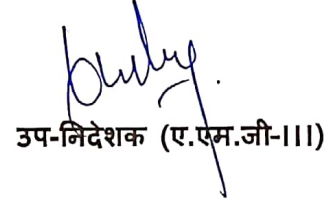 उप-निदेशक (ए.एम.जी-III)